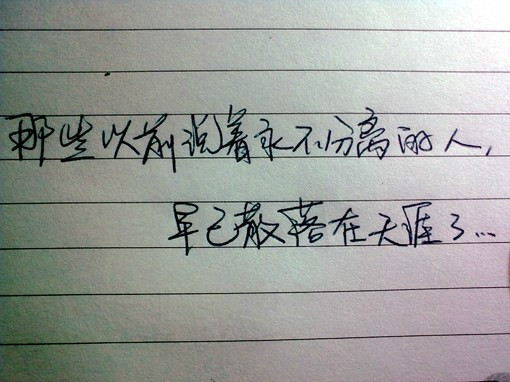 那些以前说着永不分离的人,
早已散落在天涯了...